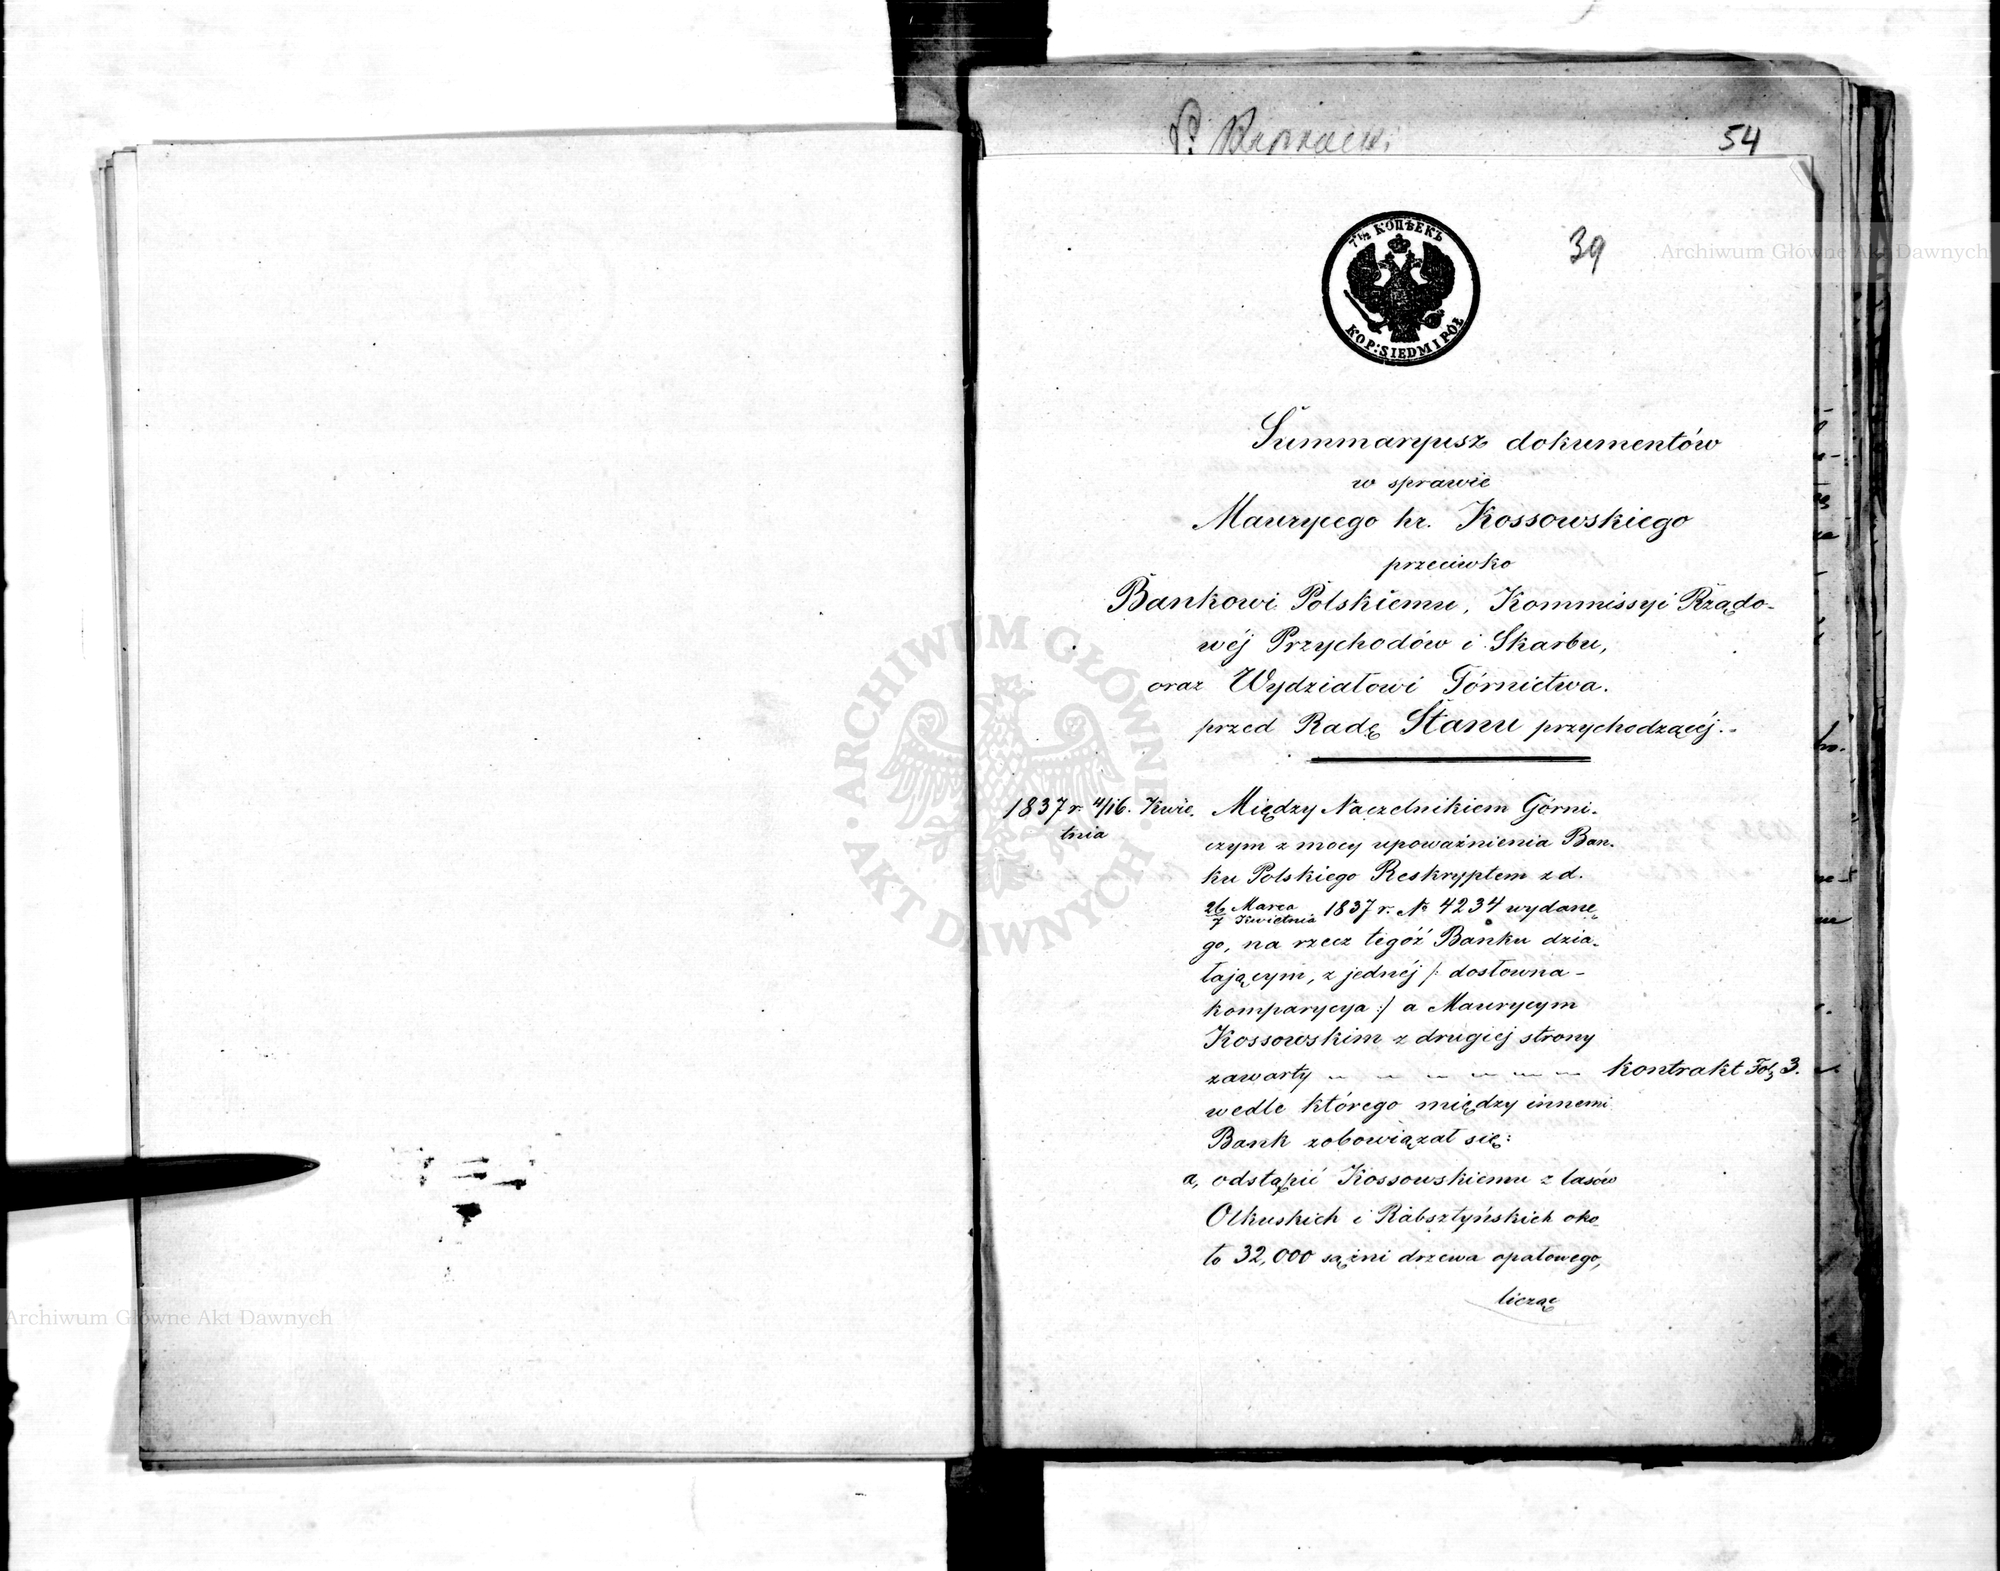 54
39
7 1/2 КОПѢЕКЪ
KOP: SIEDM I PÓŁ
Summaryusz dokumentów
w sprawie
Maurycego hr. Kossowskiego
przeciwko
Bankowi Polskiemu, Kommissyi Rządo-
wéj Przychodów i Skarbu,
oraz Wydziałowi Górnictwa.
przed Radę Stanu przychodzącéj.
1837 r. 4/16. Kwie-
tnia
Między Naczelnikiem Górni-
czym z mocy upoważnienia Ban-
ku Polskiego Reskryptem z d.
26 Marca / 7 Kwietnia 1837 r. № 4234 wydane-
go, na rzecz tegóż Banku dzia-
łającym, z jednéj /: dosłowna-
komparycya :/ a Maurycym
Kossowskim z drugiej strony
zawarty kontrakt Fol. 3.
wedle którego między innemi
Bank zobowiązał się:
a, odstąpić Kossowskiemu z lasów
Olkuskich i Rabsztyńskich oko-
ło 32,000 sążni drzewa opałowego,
licząc
Archiwum Główne Akt Dawnych
ARCHIWUM GŁÓWNE
AKT DAWNYCH
Archiwum Główne Akt Dawnych